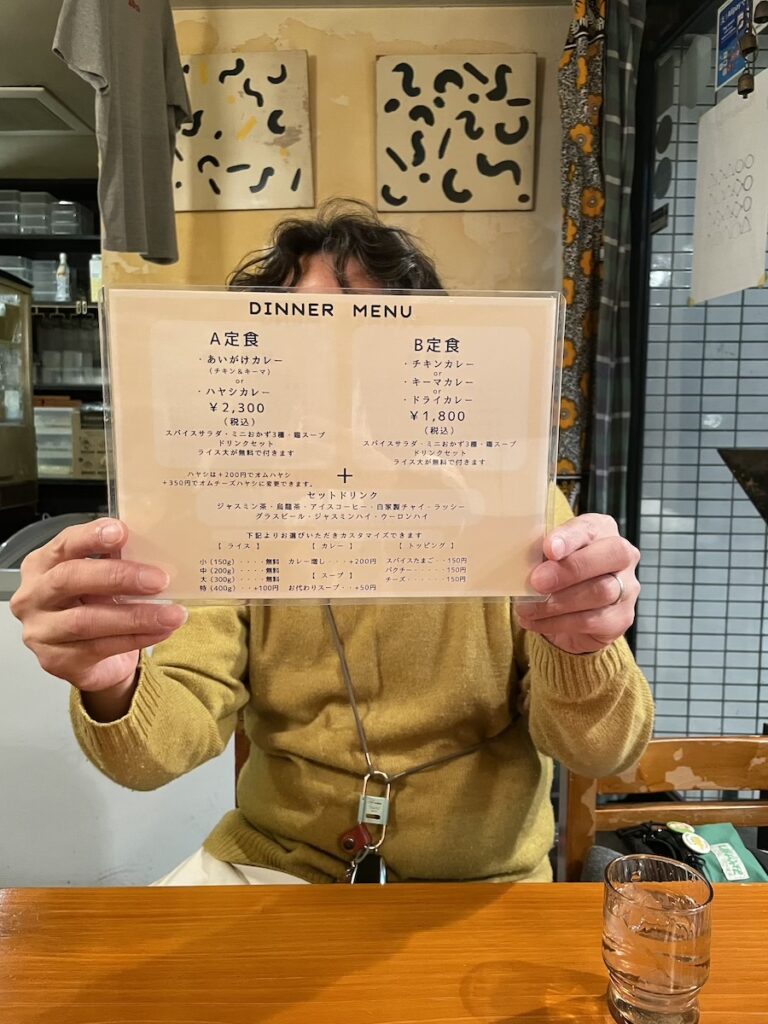 DINNER MENU
A定食
・あいがけカレー
(チキン＆キーマ)
or
・ハヤシカレー
¥2,300
(税込)
スパイスサラダ・ミニおかず3種・鶏スープ
ドリンクセット
ライス大が無料で付きます
ハヤシは+200円でオムハヤシ
+350円でオムチーズハヤシに変更できます。
B定食
・チキンカレー
or
・キーマカレー
or
・ドライカレー
¥1,800
(税込)
スパイスサラダ・ミニおかず3種・鶏スープ
ドリンクセット
ライス大が無料で付きます
+
セットドリンク
ジャスミン茶・烏龍茶・アイスコーヒー・自家製チャイ・ラッシー
グラスビール・ジャスミンハイ・ウーロンハイ
下記よりお選びいただきカスタマイズできます
【 ライス 】
小 (150g)・・・・・無料
中 (200g)・・・・・無料
大 (300g)・・・・・無料
特 (400g)・・・+100円
【 カレー 】
カレー増し・・・・+200円
【 スープ 】
お代わりスープ・・+50円
【 トッピング 】
スパイスたまご・・150円
パクチー・・・・・150円
チーズ・・・・・・150円